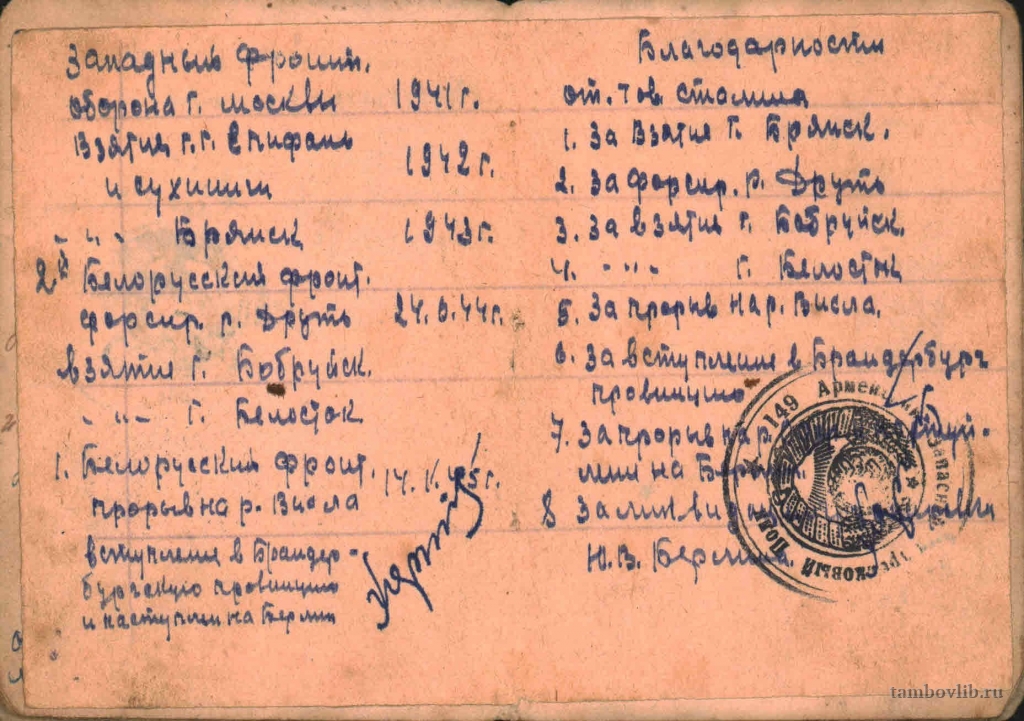 Западный фронт.
оборона г. москвы 1941 г.
Взятия г.г. Епифань 1942 г.
и сухиничи
- " - Брянск 1943 г.
2й Белорусский фронт.
форсир. р. Друть 24.6.44 г.
взятие г. Бобруйск.
- " - г. Белосток
1. Белорусский фронт. 14.1.45 г.
прорыв на р. Висла
вступление в Брандер-
бургскую провинцию
и наступлен на Берлин
Благодарности
от. тов. сталина
1. За Взятия г. Брянск.
2. За форсир. р. Друть
3. За взятия г. Бобруйск.
4. - " - г. Белосток
5. За прорыв на р. Висла.
6. За вступление в Брандербург
провинцию
7. За прорыв на р.
на Берлин.
8 За ликвид
Ю.В. Берлина.
149 Армейский Запасный Стрелковый Полк
tambovlib.ru